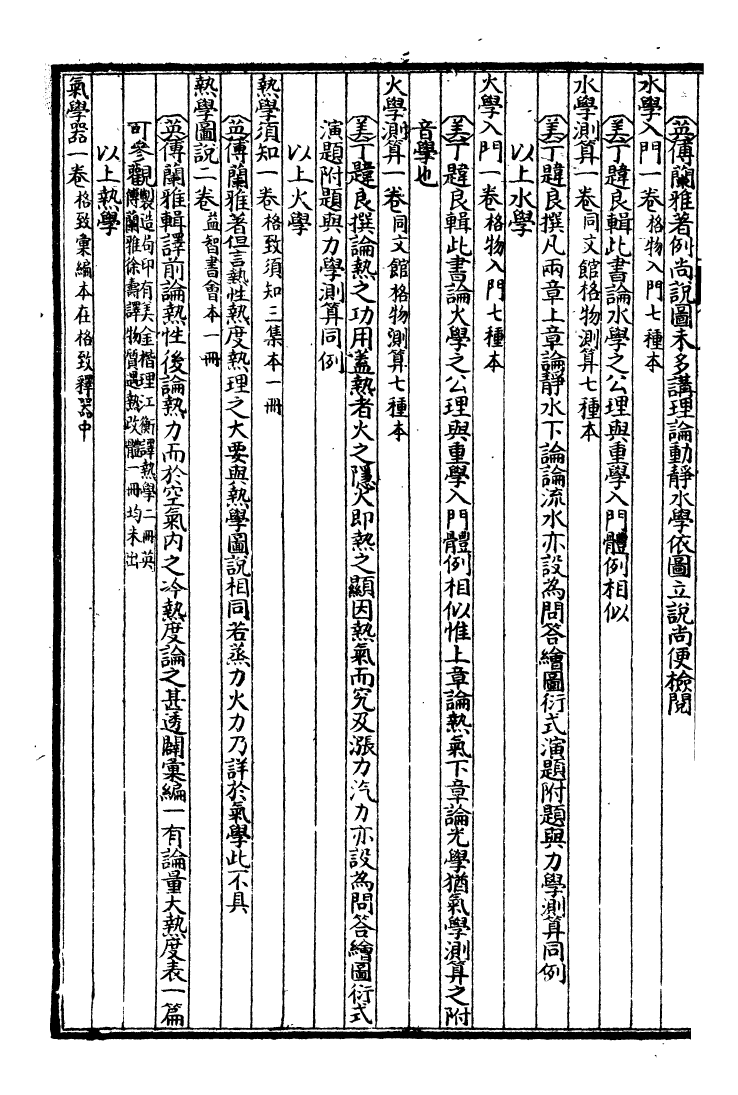 英傅蘭雅著例尚說圖未多講理論動靜水學依圖立說尚便檢閱
水學入門一卷格物入門七種本
美丁韙良輯此書論水學之公理與重學入門體例相似
水學測算一卷同文館格物測算七種本
美丁韙良撰凡兩章上章論靜水下論論流水亦設為問答繪圖衍式演題附題與力學測算同例
以上水學
火學入門一卷格物入門七種本
美丁韙良輯此書論火學之公理與重學入門體例相似惟上章論熱氣下章論光學猶氣學測算之附
音學也
火學測算一卷同文館格物測算七種本
美丁韙良撰論熱之功用蓋熱者火之隱火即熱之顯因熱氣而究及漲力汽力亦設為問答繪圖衍式
演題附題與力學測算同例
以上火學
熱學須知一卷格致須知三集本一冊
英傅蘭雅著但言熱性熱度熱理之大要與熱學圖說相同若蒸力火力乃詳於氣學此不具
熱學圖說二卷益智書會本一冊
英傅蘭雅輯譯前論熱性後論熱力而於空氣內之冷熱度論之甚透闢彙編一有論量大熱度表一篇
可參觀製造局印有美金楷理江衡譯熱學二冊英
傅蘭雅徐壽譯物質遇熱改體一冊均未出
以上熱學
氣學器一卷格致彙編本在格致釋器中